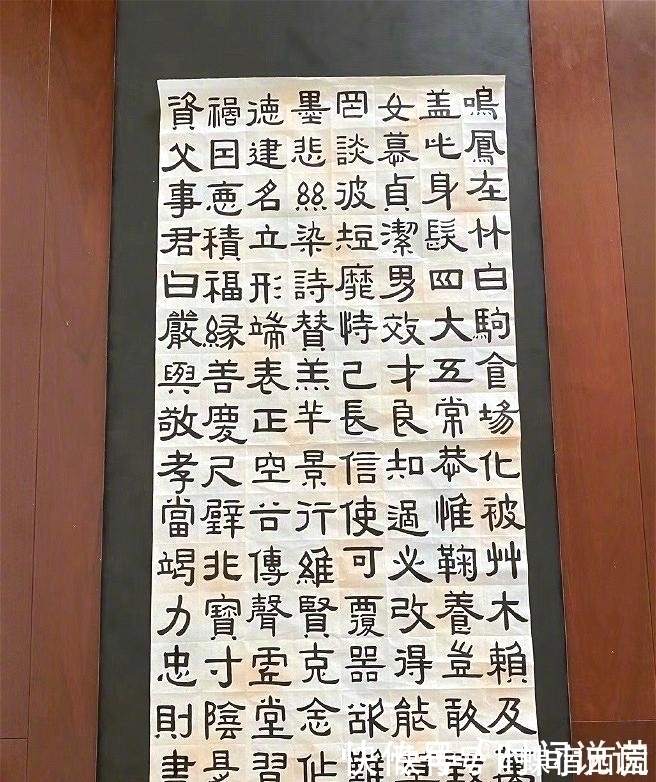 鳴鳳在竹白駒食場化被艸木賴及
盖此身髮四大五常恭惟鞠養豈敢
女慕貞潔男效才良知過必改得能
罔談彼短靡恃己長信使可覆器欲難
墨悲絲染詩賛羔羊景行維賢克念作
德建名立形端表正空谷傳聲虛堂習
禍因惡積福緣善慶尺璧非寶寸陰是
資父事君曰嚴與敬孝當竭力忠則盡